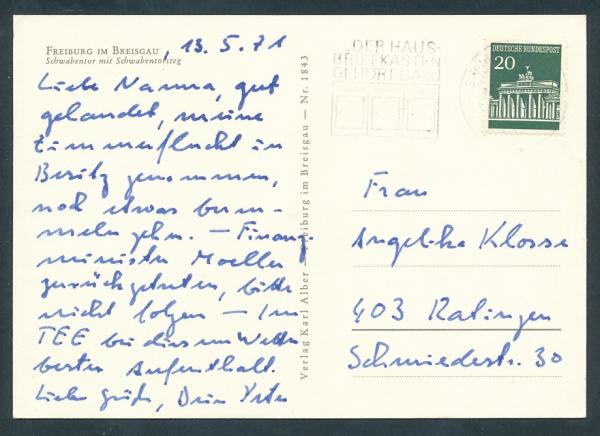 FREIBURG IM BREISGAU
Schwabentor mit Schwabentorsteg
, 13. 5. 71
Liebe Nanna, gut
gelandet, meine
Zimmerflucht in
Besitz genommen,
noch etwas bum-
meln gehn. – Finanz-
minister Moeller
zurückgetreten, bitte
nicht folgen – Im
TEE bei diesem Wetter
bester Aufenthalt.
Liebe Grüße, Dein
Verlag Karl Alber Freiburg im Breisgau — Nr. 1843
DER HAUS-
BRIEFKASTEN
GEHÖRT DAZU
DEUTSCHE BUNDESPOST
20
Frau
Angelika Klosse
403 Ratingen
Schmiedestr. 30